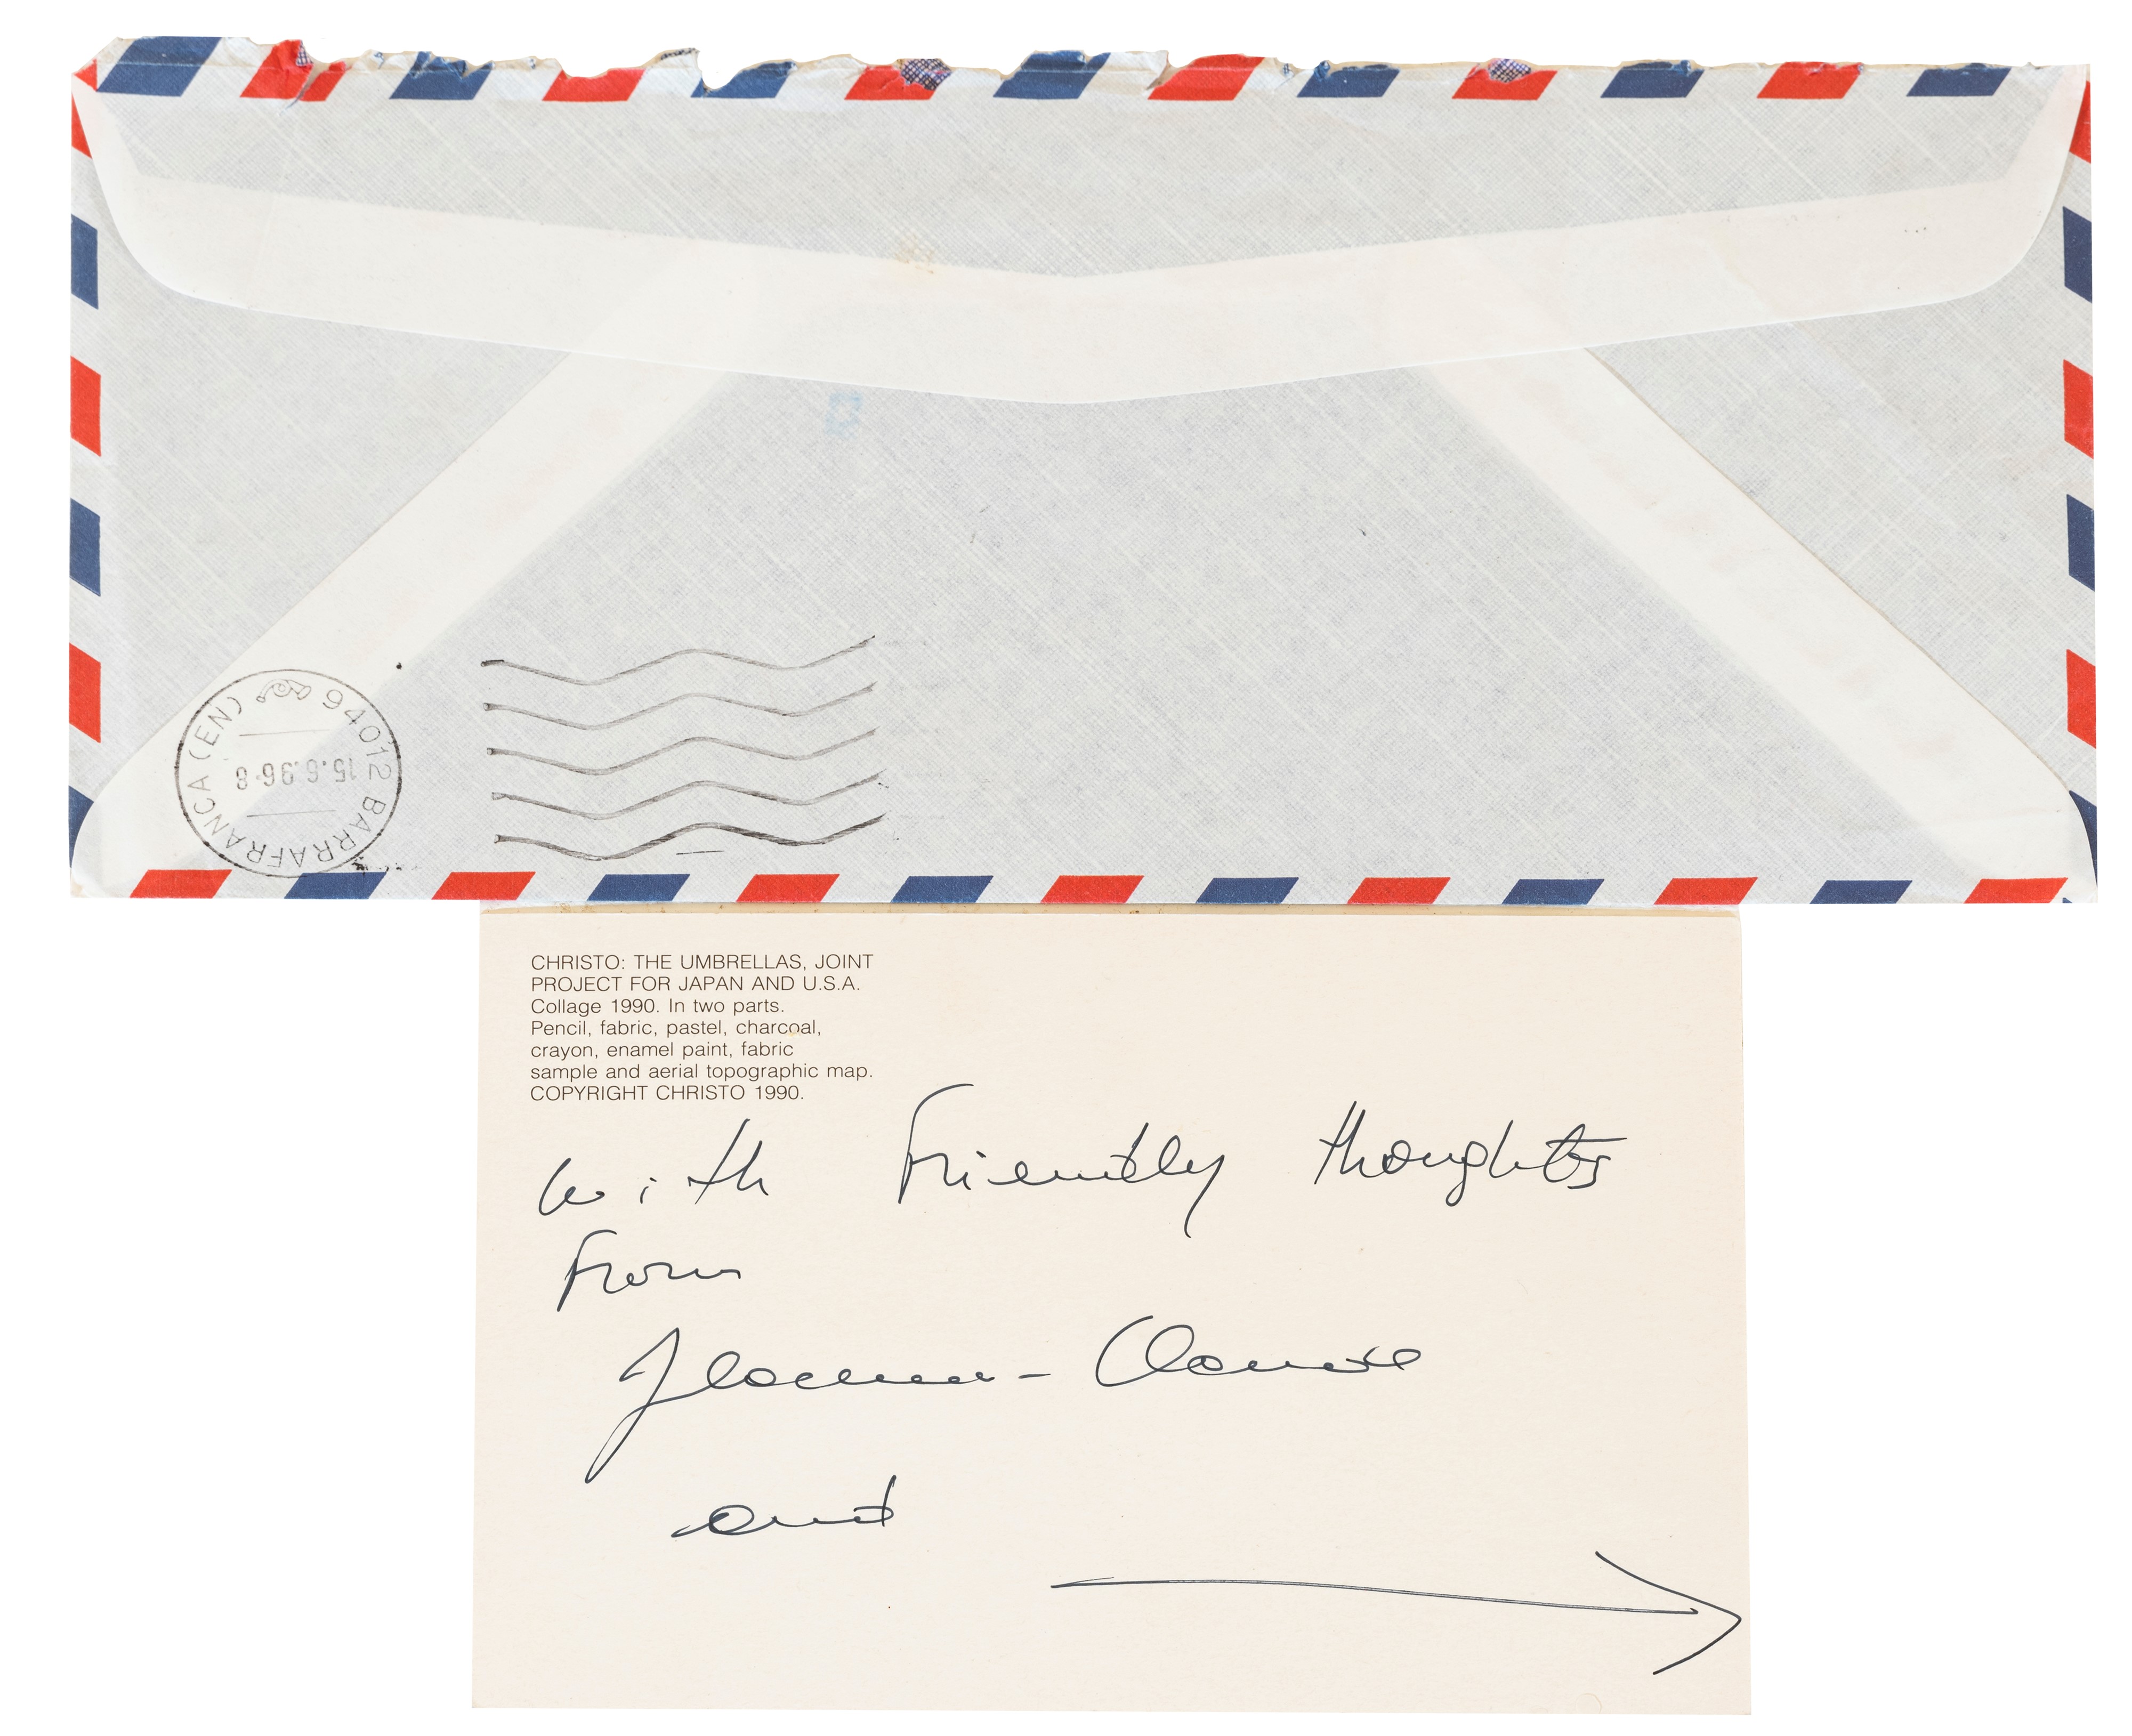 94012 BARRAFRANCA (EN)
15.6.96-8
CHRISTO: THE UMBRELLAS, JOINT
PROJECT FOR JAPAN AND U.S.A.
Collage 1990. In two parts.
Pencil, fabric, pastel, charcoal,
crayon, enamel paint, fabric
sample and aerial topographic map.
COPYRIGHT CHRISTO 1990.
with friendly thoughts
from
Jeanne-Claude
and